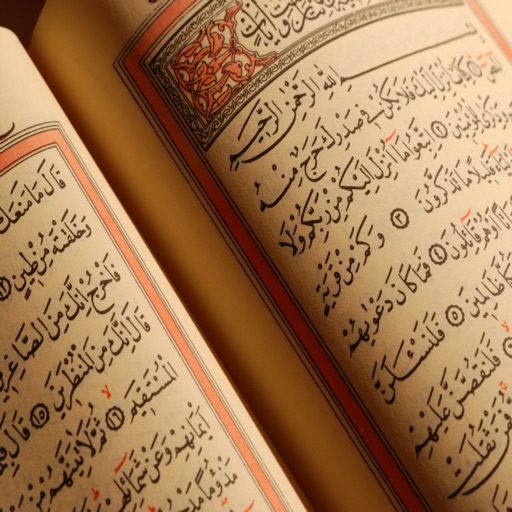 بِسْمِ اللّٰهِ الرَّحْمٰنِ الرَّحِيمِ
الٓمٓصٓ ۝١ كِتَابٌ اُنْزِلَ اِلَيْكَ فَلَا يَكُنْ فِى صَدْرِكَ حَرَجٌ مِنْهُ
وَذِكْرٰى لِلْمُؤْمِنِينَ ۝٢ اِتَّبِعُوا مَٓا اُنْزِلَ اِلَيْكُمْ مِنْ رَبِّكُمْ وَلَا
قَلِيلًا مَا تَذَكَّرُونَ ۝٣ وَكَمْ مِنْ قَرْيَةٍ
اَوْ هُمْ قَٓائِلُونَ ۝٤ فَمَا كَانَ دَعْوٰيهُمْ
ظَالِمِينَ ۝٥ فَلَنَسْـَٔلَنَّ
فَلَنَقُصَّنَّ عَلَيْهِمْ
فَمَنْ ثَقُلَتْ
قَالَ مَا مَنَعَكَ
وَخَلَقْتَهُ مِنْ طِينٍ ۝١٢
فَاخْرُجْ اِنَّكَ مِنَ الصَّاغِرِينَ
قَالَ اِنَّكَ مِنَ الْمُنْظَرِينَ ۝١٥ قَالَ
الْمُسْتَقِيمَ ۝١٦ ثُمَّ لَاٰتِيَنَّهُمْ مِنْ
اَيْمَانِهِمْ وَعَنْ شَمَٓائِلِهِمْ
مَذْؤُمًا